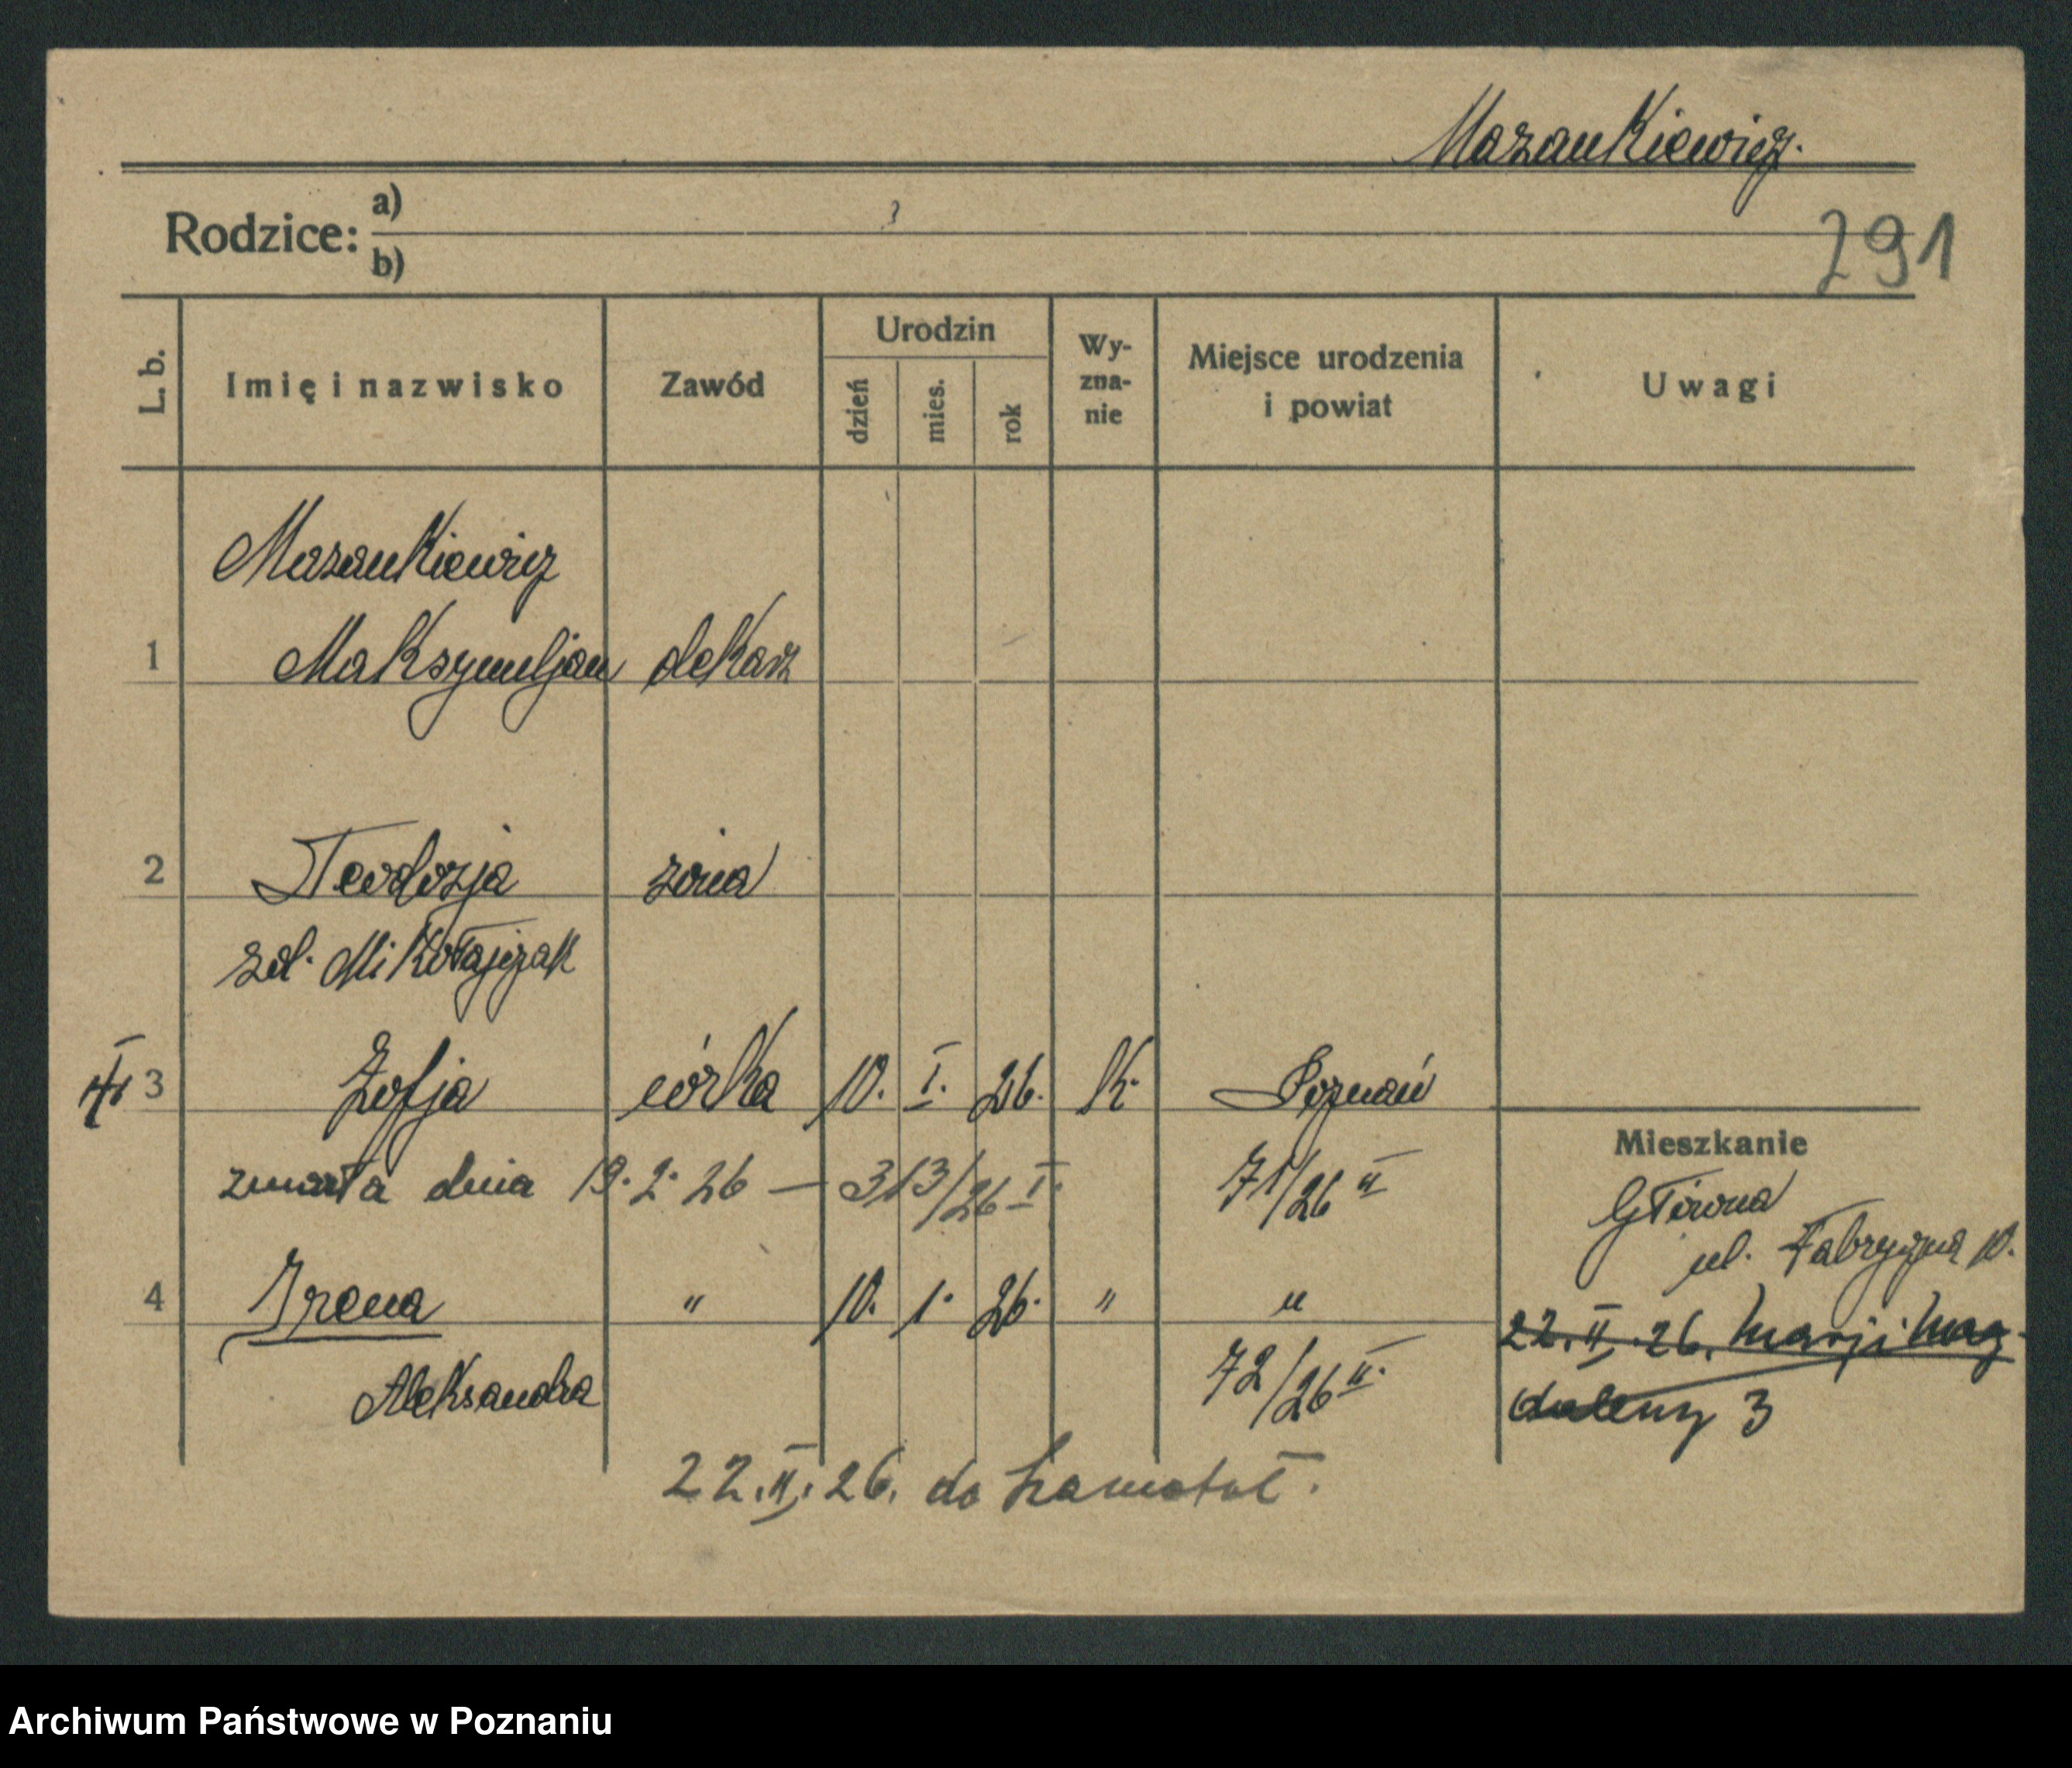 Mazankiewicz.
Rodzice: a) ?
b)
291
L. b. Imię i nazwisko Zawód Urodzin dzień mies. rok Wyznanie Miejsce urodzenia i powiat Uwagi
Mazankiewicz
1 Maksymiljan dekarz
2 Teodozja żona
zd. Mikołajczak
3 Zofja córka 10. I. 26. K. Poznań
zmarła dnia 19. 2. 26 — 313/26 I. 71/26 II
Mieszkanie
Główna
ul. Fabryczna 10.
4 Irena " 10. 1. 26. " "
22. II. 26. Marji Mag-
daleny 3
Aleksandra 72/26 II.
22. II. 26. do